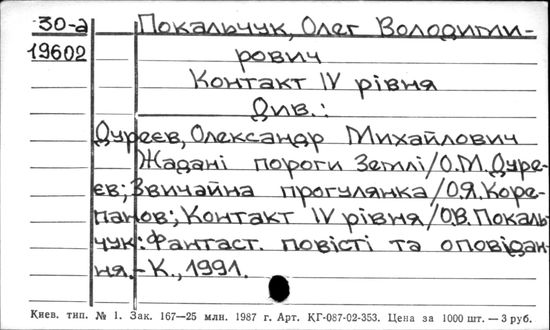 30-а Покальчук, Олег Володими-
19602 рович
Контакт IV рівня
Див.:
Дуреєв, Олександр Михайлович
Жадані пороги Землі/О.М.Дуре-
єв; Звичайна прогулянка/О.Я.Коре-
панов; Контакт IV рівня/О.В.Покаль-
чук: Фантаст. повісті та оповідан-
ня.-К., 1991.
Киев. тип. № 1. Зак. 167—25 млн. 1987 г. Арт. КГ-087-02-353. Цена за 1000 шт. — 3 руб.